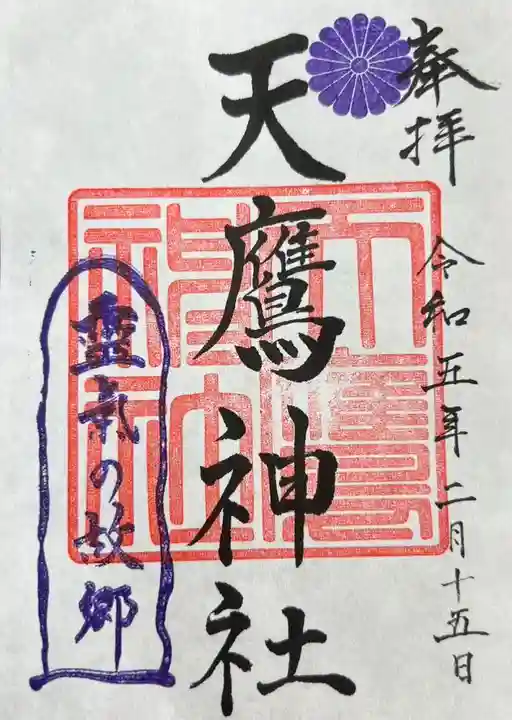 奉拝
令和五年二月十五日
天鷹神社
天鷹神社
靈氣の故郷